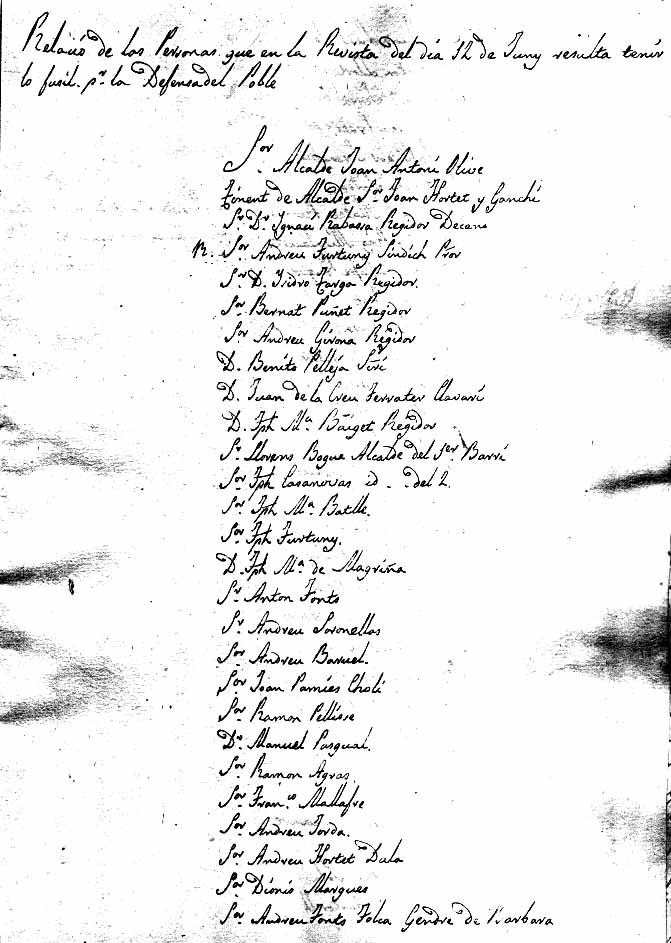 Relació de las Personas que en la Revista del dia 12 de Juny resulta tenir
lo fusil pr. la Defensa del Poble
Sor. Alcalde Joan Antoni Olive
Tinent de Alcalde Sor. Joan Hortet y Ganchi
Sr. Dr. Ignaci Rabassa Regidor Decano
R. Sor. Andreu Furtuny Sindich Pror
Sor. D. Isidro Targa Regidor.
Sor. Bernat Puñet Regidor
Sor. Andreu Girona Regidor
D. Benito Pelleja
D. Juan de la Creu Ferrater Clavari
D. Jph Ma. Baiget Regidor
Sr. Llorens Bogue Alcalde del 1er Barri
Sor. Jph Casanovas id. del 2.
Sor. Jph Ma. Batlle.
Sor. Jph Furtuny.
D. Jph Ma. de Magriña
Sr. Anton Fonts
Sr. Andreu Soronellas
Sor. Andreu Barriel.
Sor. Joan Pamies Choli
Sor. Ramon Pellisse
Dn. Manuel Pasqual.
Sor. Ramon Agras.
Sor. Franco. Mallafre
Sor. Andreu Jorda.
Sor. Andreu Hortet Dala
Sor. Dionis Margues
Sor. Andreu Fonts Folca Gendre de Barbara